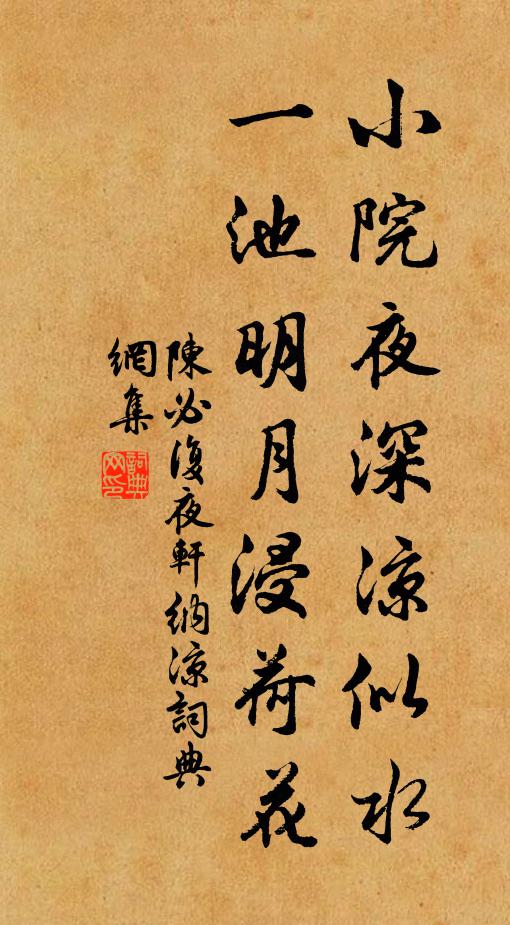 小院夜深凉似水
一池明月浸荷花
陳必復夜軒納凉詞典
網集
詞典
网印